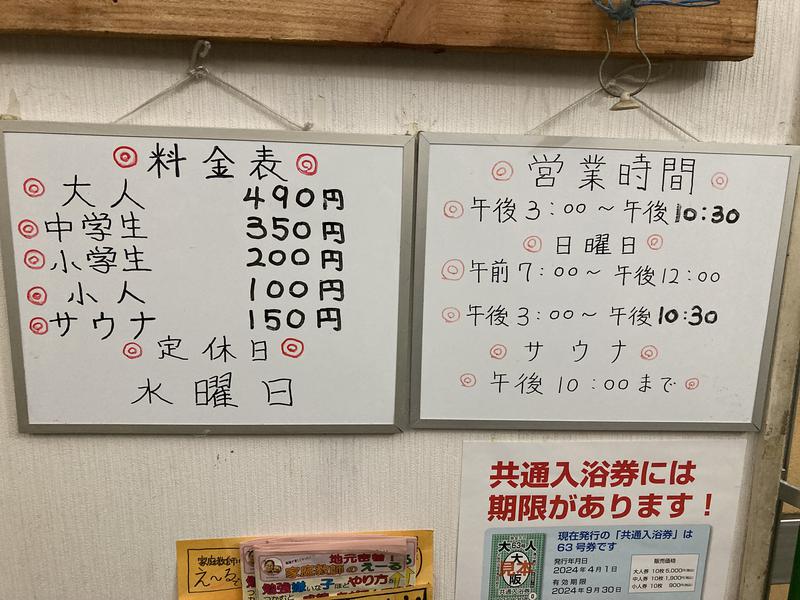 ◎料金表◎
◎大人 490円
◎中学生 350円
◎小学生 200円
◎小人 100円
◎サウナ 150円
◎定休日◎
水曜日
◎営業時間◎
◎午後3:00～午後10:30
◎日曜日◎
◎午前7:00～午後12:00
◎午後3:00～午後10:30
◎サウナ◎
◎午後10:00まで◎
共通入浴券には
期限があります！
現在発行の「共通入浴券」は
63号券です
発行年月日
2024年4月1日
有効期限
2024年9月30日
販売価格
大人券 10枚5,000円(税込)
中人券 10枚1,900円(税込)
小人券 10枚 900円(税込)
大63号人
大阪
見本
共通入浴券
家庭教師の
え～る
地元密着！
家庭教師のえーる
勉強嫌いな子ほど
やり方！！